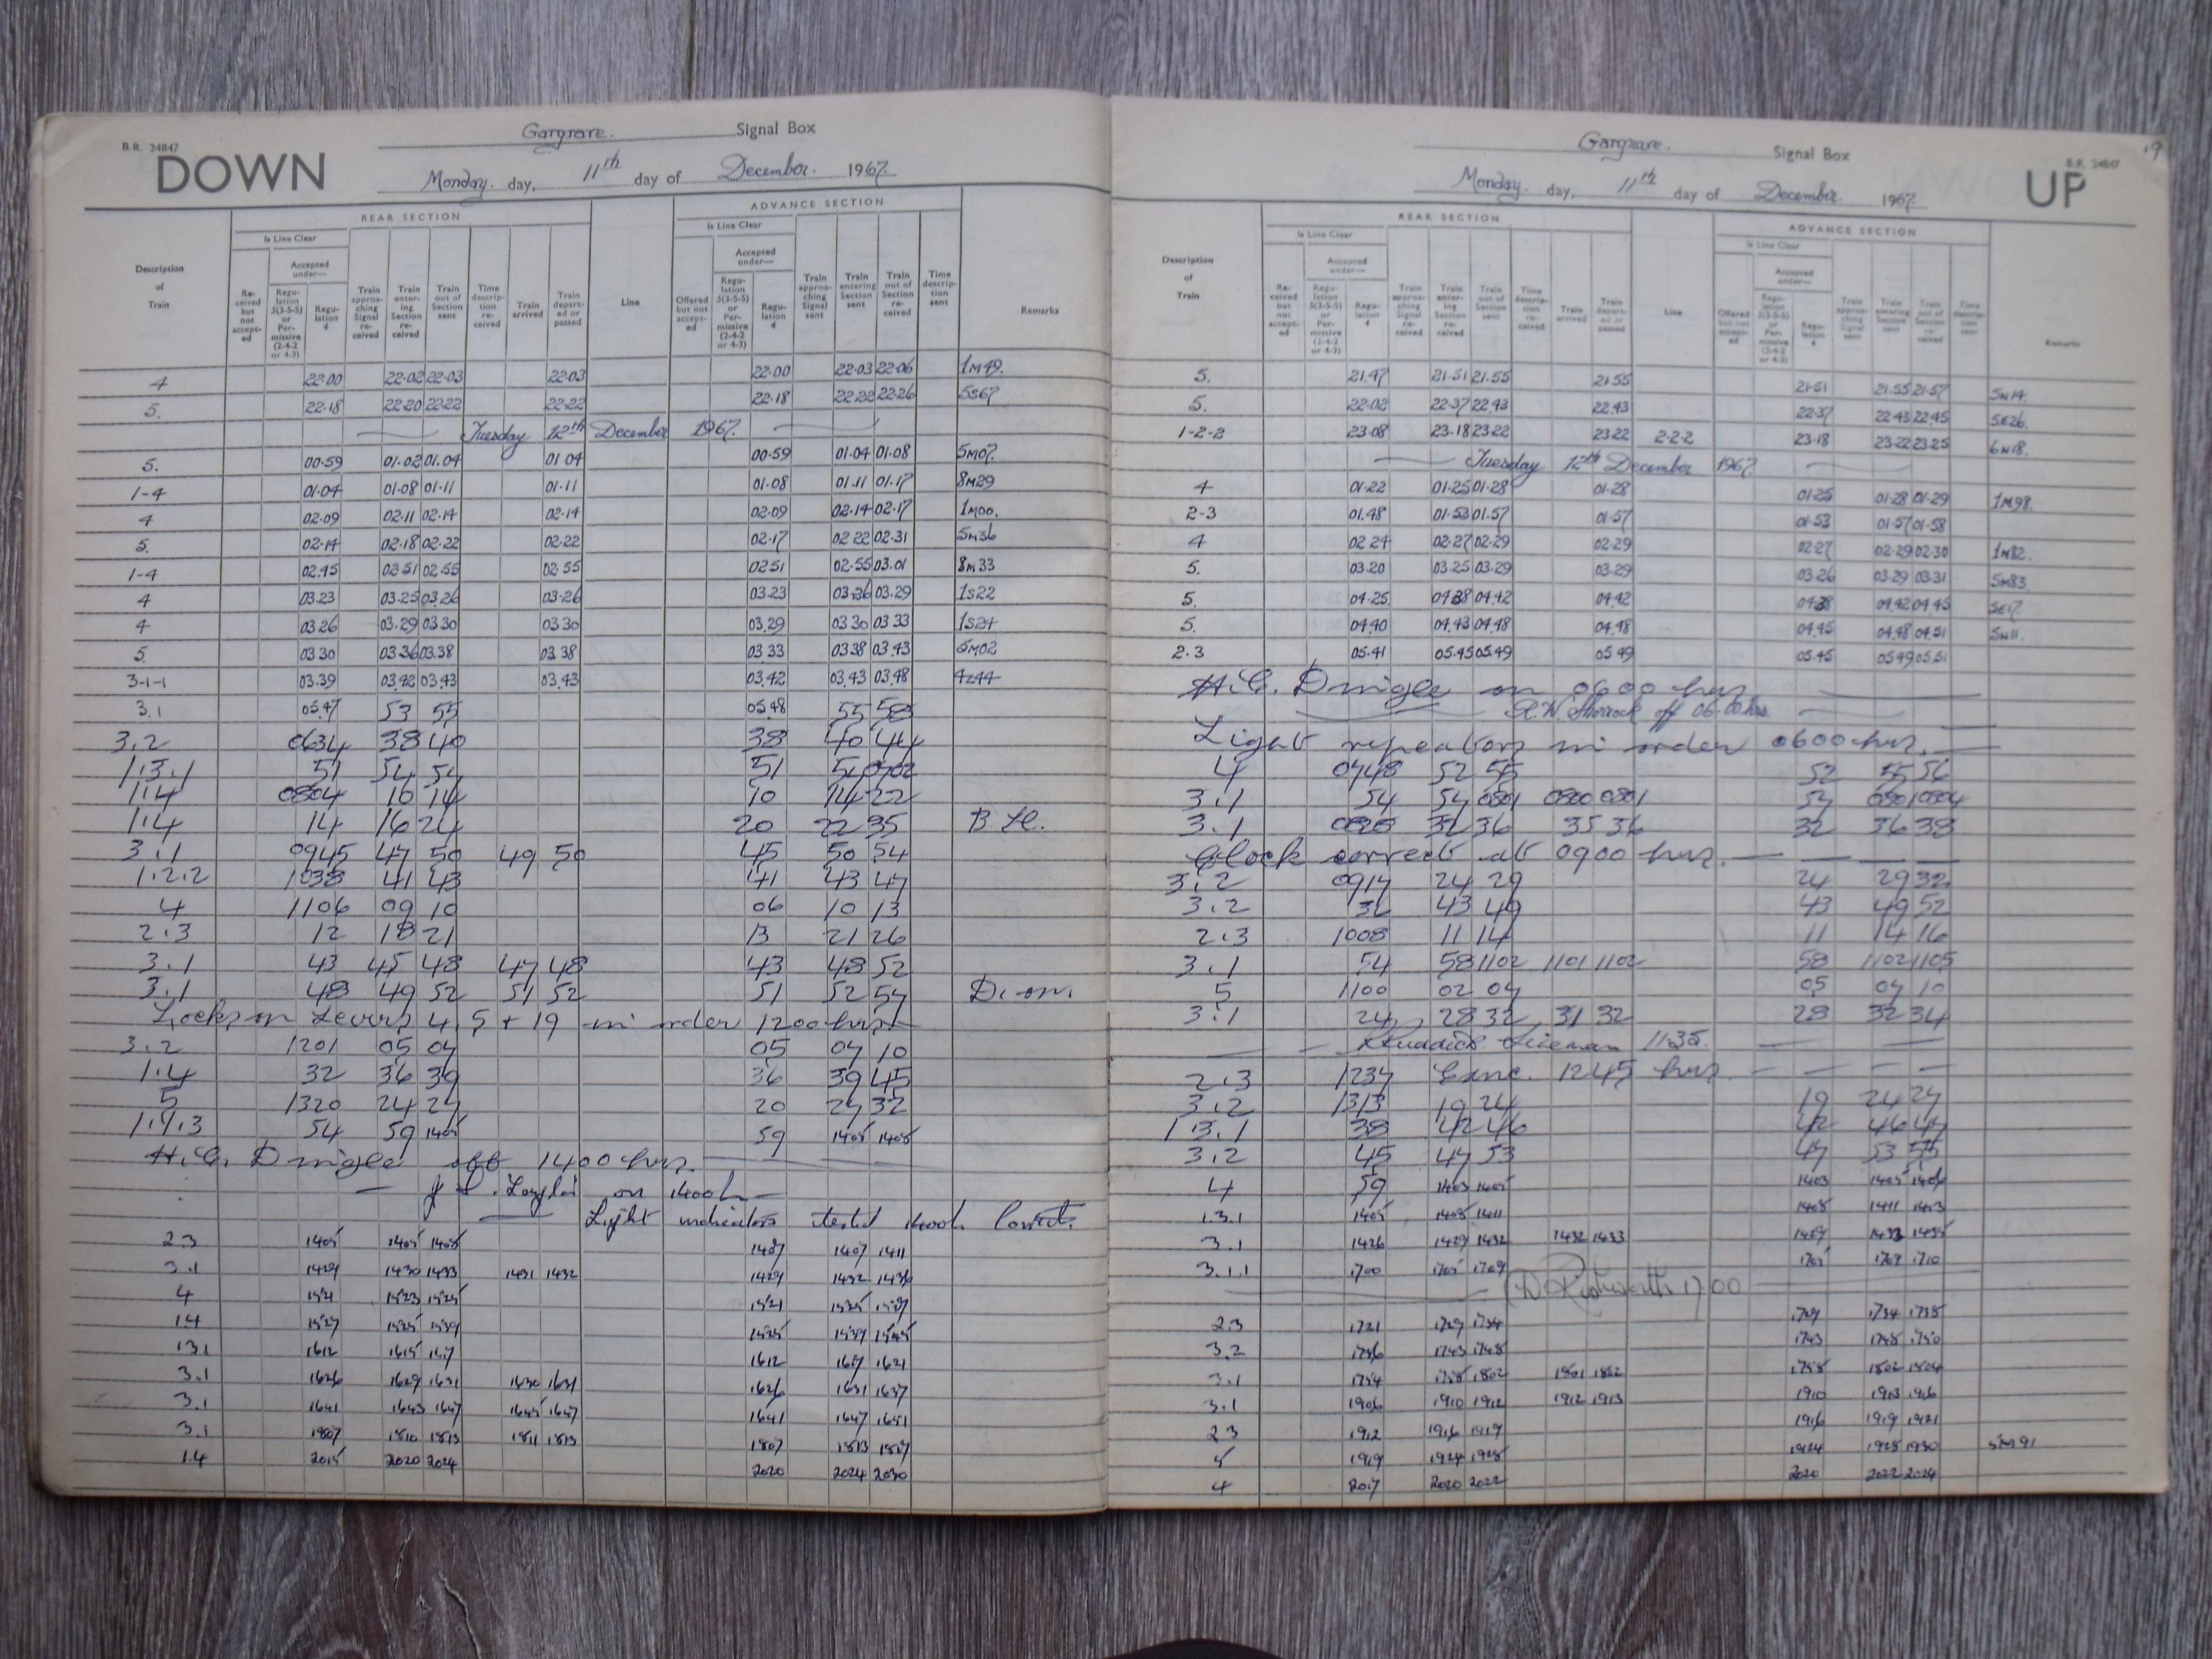 B.R. 24847
DOWN
Gargrave. Signal Box
Monday. day, 11th day of December. 1967.
REAR SECTION
ADVANCE SECTION
Is Line Clear
Is Line Clear
Accepted under—
Accepted under—
Description of Train
Re-ceived but not accept-ed
Regu-lation 5(3-5-5) or Per-missive (2-4-2 or 4-3)
Regu-lation 4
Train approa-ching Signal re-ceived
Train enter-ing Section re-ceived
Train out of Section sent
Time descrip-tion re-ceived
Train arrived
Train depart-ed or passed
Line
Offered but not accept-ed
Regu-lation 5(3-5-5) or Per-missive (2-4-2 or 4-3)
Regu-lation 4
Train approa-ching Signal sent
Train entering Section sent
Train out of Section re-ceived
Time descrip-tion sent
Remarks
4 22.00 22.02 22.03 22.03 22.00 22.03 22.06 1M49.
5. 22.18 22.20 22.22 22.22 22.18 22.22 22.26 5S67
Tuesday 12th December 1967.
5. 00.59 01.02 01.04 01 04 00.59 01.04 01.08 5M07.
1-4 01.04 01.08 01.11 01.11 01.08 01.11 01.17 8M29
4 02.09 02.11 02.14 02.14 02.09 02.14 02.17 1M00.
5. 02.14 02.18 02.22 02.22 02.17 02 22 02.31 5M36
1-4 02.45 02 51 02.55 02 55 02 51 02.55 03.01 8M33
4 03.23 03.25 03.26 03.26 03.23 03.26 03.29 1S22
4 03 26 03.29 03 30 03 30 03.29 03 30 03 33 1S24
5. 03 30 03 36 03.38 03 38 03 33 03 38 03.43 5M02
3-1-1 03.39 03.42 03.43 03.43 03.42 03.43 03.48 4Z44
3.1 05.47 53 55 05.48 55 58
3.2 0634 38 40 38 40 44
1.3.1 51 54 57 51 57 0702
1.4 0804 10 14 10 14 22
1.4 14 16 24 20 22 35
3.1 0945 47 50 49 50 45 50 54
1.2.2 1038 41 43 41 43 47
4 1106 09 10 06 10 13
2.3 12 18 21 13 21 26
3.1 43 45 48 47 48 43 48 52
3.1 48 49 52 51 52 51 52 57
Locks on Levers 4, 5 + 19 in order 1200 hrs
3.2 1201 05 07 05 07 10
1.4 32 36 39 36 39 45
5 1320 24 27 20 27 32
1.1.3 54 59 1405 59 1405 1408
H.C. Dingle off 1400 hrs.
on 1400h
Light indicators tested 1400h. Correct.
2.3 1405 1405 1408 1407 1407 1411
3.1 1429 1430 1433 1431 1432 1429 1432 1436
4 1521 1523 1525 1521 1525 1529
1.4 1527 1535 1539 1535 1539 1545
1.3.1 1612 1615 1617 1612 1617 1621
3.1 1626 1629 1631 1630 1631 1626 1631 1637
3.1 1641 1643 1647 1645 1647 1641 1647 1651
3.1 1807 1810 1813 1811 1813 1807 1813 1817
1.4 2015 2020 2024 2020 2024 2030
Gargrave. Signal Box
B.R. 24847
UP
Monday. day, 11th day of December 1967.
REAR SECTION
ADVANCE SECTION
Is Line Clear
Is Line Clear
Accepted under—
Accepted under—
Description of Train
Re-ceived but not accept-ed
Regu-lation 5(3-5-5) or Per-missive (2-4-2 or 4-3)
Regu-lation 4
Train approa-ching Signal re-ceived
Train enter-ing Section re-ceived
Train out of Section sent
Time descrip-tion re-ceived
Train arrived
Train depart-ed or passed
Line
Offered but not accept-ed
Regu-lation 5(3-5-5) or Per-missive (2-4-2 or 4-3)
Regu-lation 4
Train approa-ching Signal sent
Train entering Section sent
Train out of Section re-ceived
Time descrip-tion sent
Remarks
5. 21.47 21.51 21.55 21 55 21.51 21.55 21.57 5N14.
5. 22.02 22.37 22.43 22.43 22.37 22.43 22.45 5E26.
1-2-2 23.08 23.18 23 22 23 22 2-2-2 23.18 23.22 23.25 6N18.
Tuesday 12th December 1967.
4 01.22 01.25 01.28 01.28 01.25 01.28 01.29 1M98.
2-3 01.48 01.53 01.57 01.57 01.53 01.57 01.58
4 02 24 02.27 02.29 02.29 02.27 02.29 02.30 1M82.
5. 03.20 03.25 03.29 03.29 03.26 03.29 03.31 5M83
5. 04.25. 04.38 04.42 04.42 04.38 04.42 04 45 5E17.
5. 04.40 04.43 04.48 04.48 04.45 04.48 04.51 5N11.
2.3 05.41 05.45 05.49 05 49 05.45 05.49 05.51
H.C. Dingle on 0600 hrs
off 06.00 hrs.
Light repeaters in order 0600 hrs.
4 0748 52 55 52 55 56
3.1 54 57 0801 0800 0801 57 0801 0804
3.1 32 36 35 36 32 36 38
Clock correct at 0900 hrs.
3.2 0917 24 29 24 29 32
3.2 36 43 49 43 49 52
2.3 1008 11 14 11 14 16
3.1 54 58 1102 1101 1102 58 1102 1105
5 1100 02 07 05 07 10
3.1 24 28 32 31 32 28 32 34
Lineman 11.35.
2.3 1237 Canc. 1245 hrs
3.2 1313 19 24 19 24 27
1.3.1 38 42 46 42 46 47
3.2 45 47 53 47 53 55
4 59 1403 1405 1403 1405 1406
1.3.1 1405 1408 1411 1408 1411 1413
3.1 1426 1429 1432 1432 1433 1429 1433 1435
3.1.1 1700 1705 1709 1705 1709 1710
1700
2.3 1721 1729 1734 1729 1734 1735
3.2 1736 1743 1748 1743 1748 1750
3.1 1754 1758 1802 1801 1802 1758 1802 1804
3.1 1906 1910 1912 1912 1913 1910 1913 1916
2.3 1912 1916 1919 1916 1919 1921
5 1919 1924 1928 1924 1928 1930 5M91
4 2017 2020 2022 2020 2022 2024